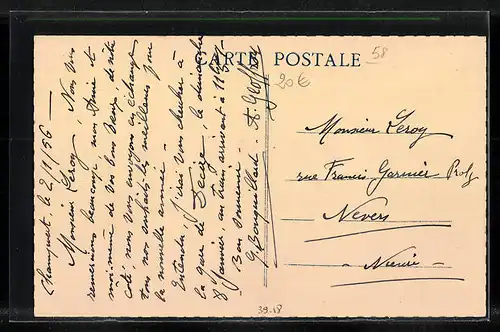 CARTE POSTALE
58
20€
Champvert, le 2/1/56
Monsieur Leroy, Nous vous
remercions beaucoup, mon Amie et
moi-même de vos bons vœux. De notre
coté, nous vous envoyons en échange
tous nos souhaits les meilleurs pour
la nouvelle année —
Entendu, j'irai vous chercher à
la gare de Decize, le dimanche
8 Janvier, au train arrivant à 11h
Bon souvenir
G. A. Geoffroy
Monsieur Leroy
rue Francis Garnier Prolg
Nevers
- Nièvre -
39-18